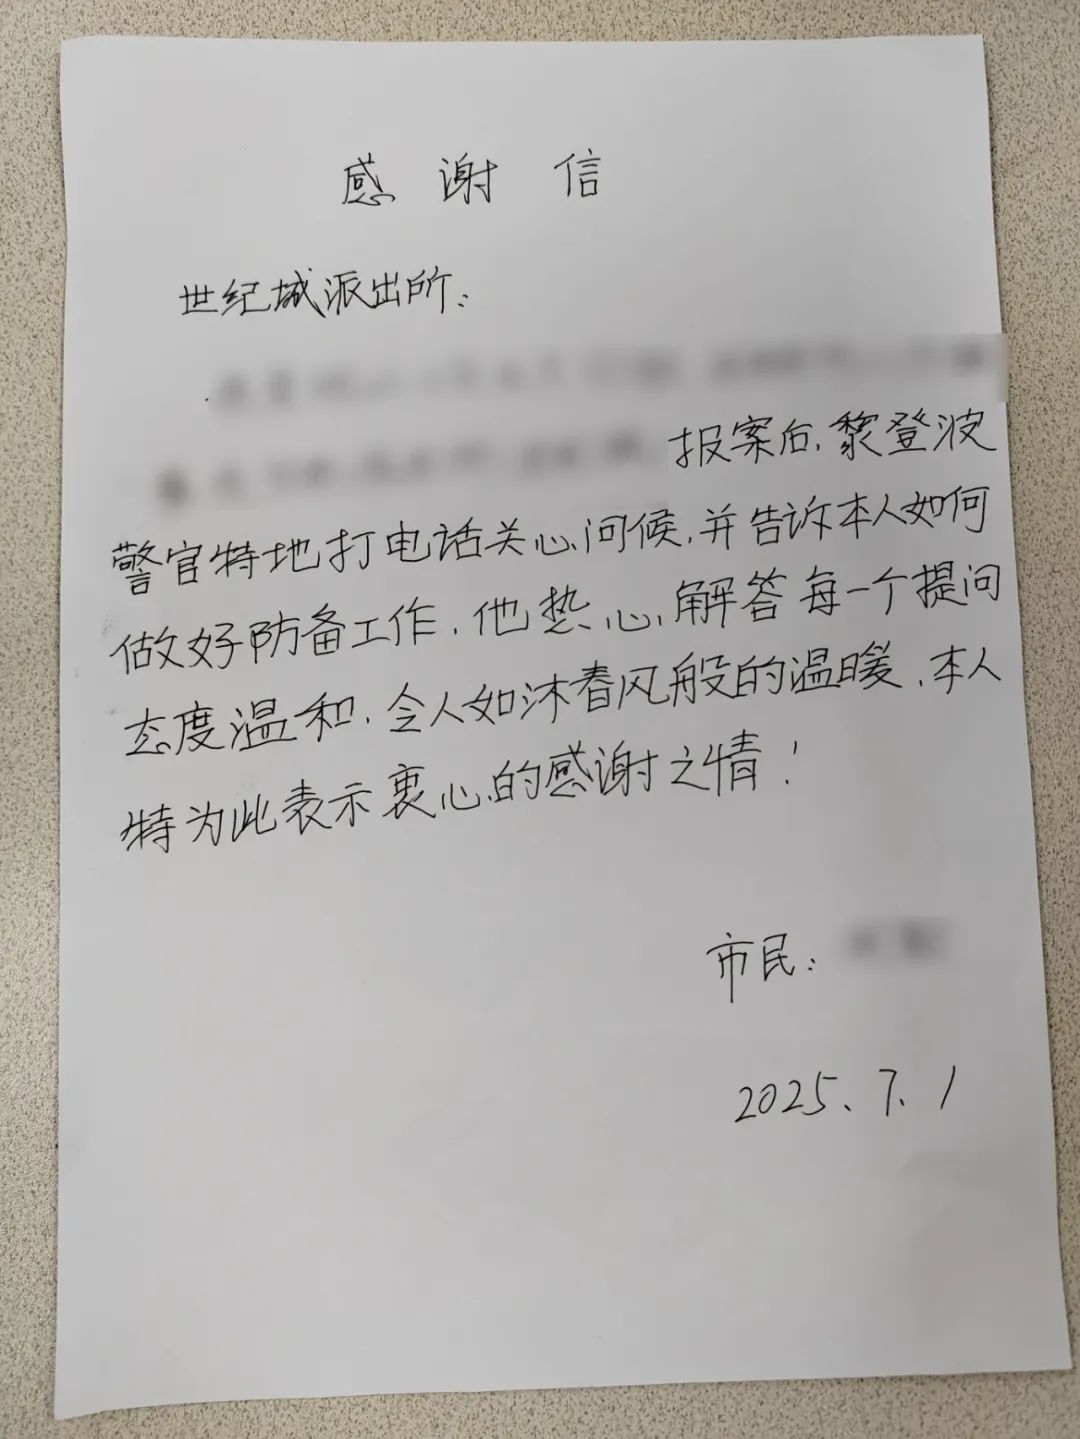 感谢信
世纪城派出所：
报案后，黎登波
警官特地打电话关心问候，并告诉本人如何
做好防备工作，他热心，解答每一个提问
态度温和，令人如沐春风般的温暖，本人
特为此表示衷心的感谢之情！
市民：
2025、7、1